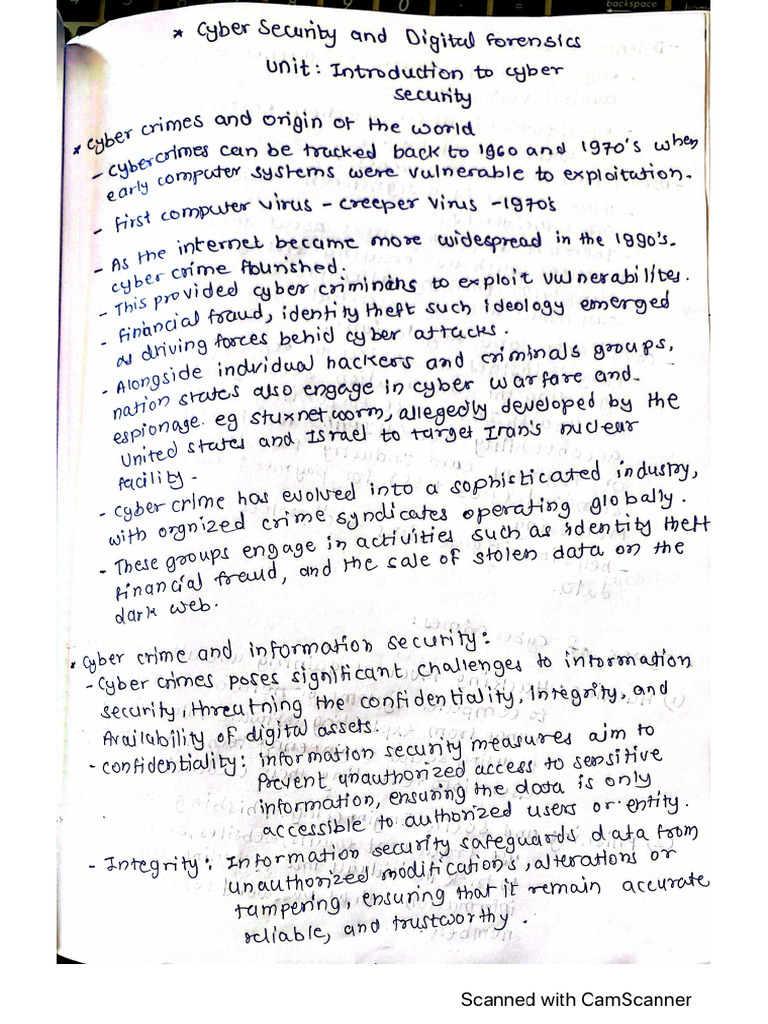 * Cyber Security and Digital forensics
Unit: Introduction to cyber
security
* Cyber crimes and origin of the world
- Cybercrimes can be tracked back to 1960 and 1970's when
early computer systems were vulnerable to exploitation.
- first computer virus - creeper virus - 1970's
- As the internet became more widespread in the 1990's.
cyber crime flourished.
- This provided cyber criminals to exploit vulnerabilites.
- financial fraud, identity theft such ideology emerged
as driving forces behid cyber attacks.
- Alongside individual hackers and criminals groups,
nation states also engage in cyber warfare and
espionage. eg stuxnet worm, allegedly developed by the
United states and Israel to target Iran's nuclear
facility -
- cyber crime has evolved into a sophisticated industry,
with orgnized crime syndicates operating globally.
- These groups engage in activities such as identity theft
financial fraud, and the sale of stolen data on the
dark web.
* Cyber crime and information security:
- Cyber crimes poses significant challenges to information
security, threatning the confidentiality, Integrity, and
Availability of digital assets.
- confidentiality: information security measures aim to
prevent unauthorized access to sensitive
information, ensuring the data is only
accessible to authorized users or entity.
- Integrity: Information security safeguards data from
unauthorized modifications, alterations or
tampering, ensuring that it remain accurate
reliable, and trustworthy.
Scanned with CamScanner